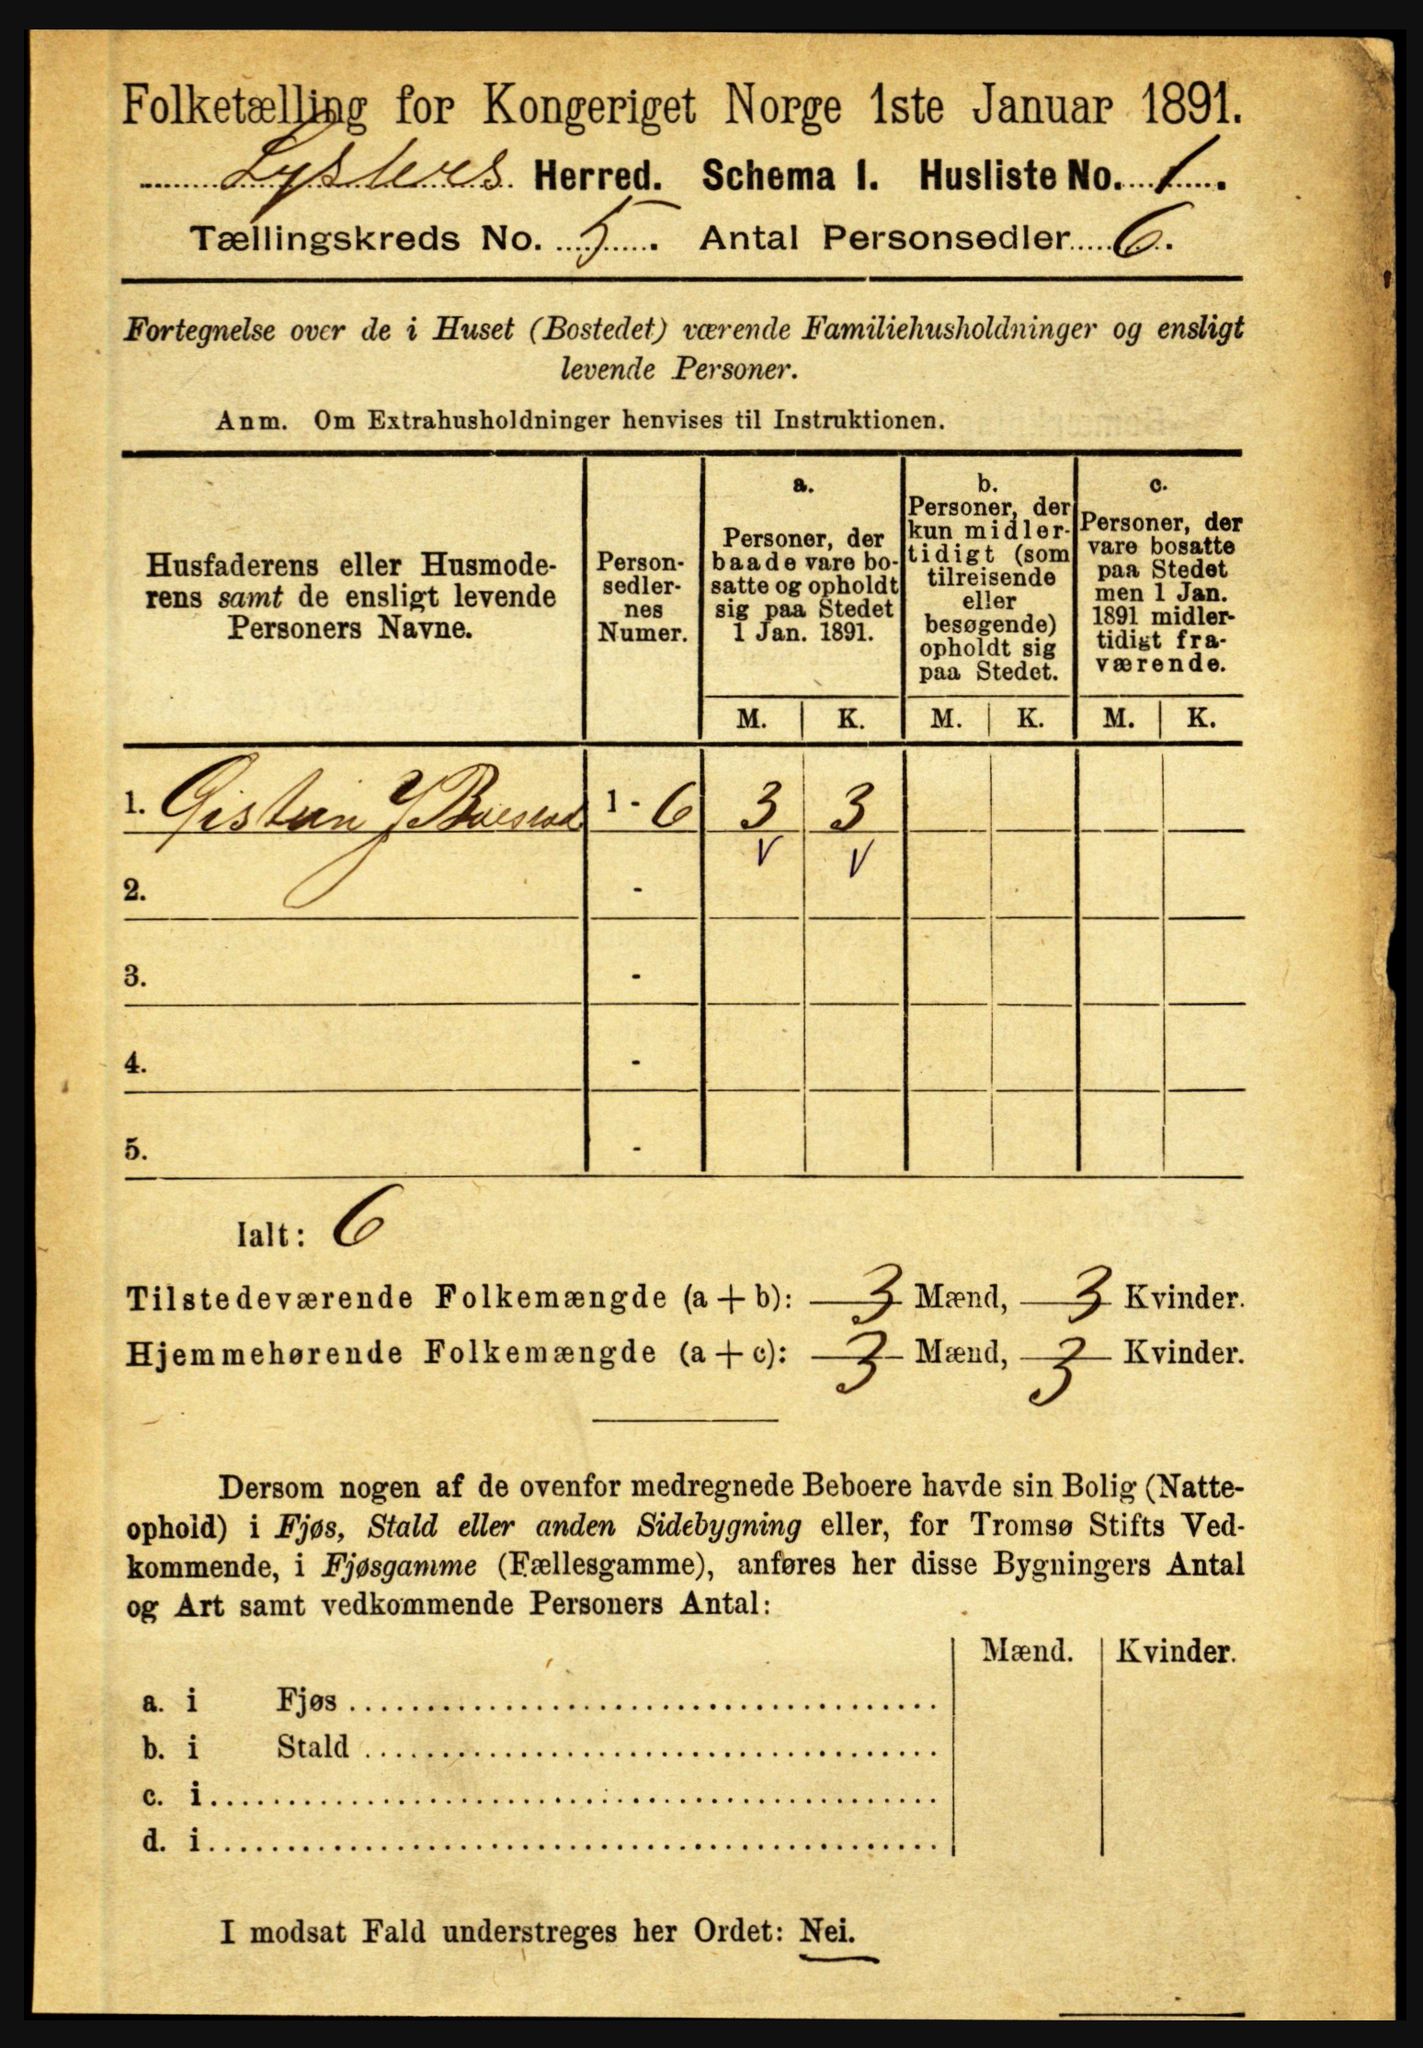 Folketælling for Kongeriget Norge 1ste Januar 1891.
Lysters Herred. Schema I. Husliste No. 1.
Tællingskreds No. 5. Antal Personsedler 6.
Fortegnelse over de i Huset (Bostedet) værende Familiehusholdninger og ensligt
levende Personer.
Anm. Om Extrahusholdninger henvises til Instruktionen.
Husfaderens eller Husmode-
rens samt de ensligt levende
Personers Navne.
Person-
sedler-
nes
Numer.
a.
Personer, der
baade vare bo-
satte og opholdt
sig paa Stedet
1 Jan. 1891.
b.
Personer, der
kun midler-
tidigt (som
tilreisende
eller
besøgende)
opholdt sig
paa Stedet.
c.
Personer, der
vare bosatte
paa Stedet
men 1 Jan.
1891 midler-
tidigt fra-
værende.
M. K. M. K. M. K.
1. 1 - 6 3 3
2. -
3. -
4. -
5. -
Ialt: 6
Tilstedeværende Folkemængde (a + b): 3 Mænd, 3 Kvinder.
Hjemmehørende Folkemængde (a + c): 3 Mænd, 3 Kvinder.
Dersom nogen af de ovenfor medregnede Beboere havde sin Bolig (Natte-
ophold) i Fjøs, Stald eller anden Sidebygning eller, for Tromsø Stifts Ved-
kommende, i Fjøsgamme (Fællesgamme), anføres her disse Bygningers Antal
og Art samt vedkommende Personers Antal:
Mænd. Kvinder.
a. i Fjøs
b. i Stald
c. i
d. i
I modsat Fald understreges her Ordet: Nei.